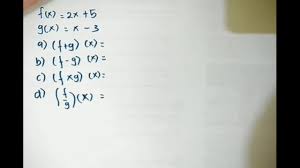 f(x) = 2x + 5
g(x) = x - 3
a) (f+g) (x) =
b) (f-g) (x) =
c) (f×g) (x) =
d) (f/g) (x) =